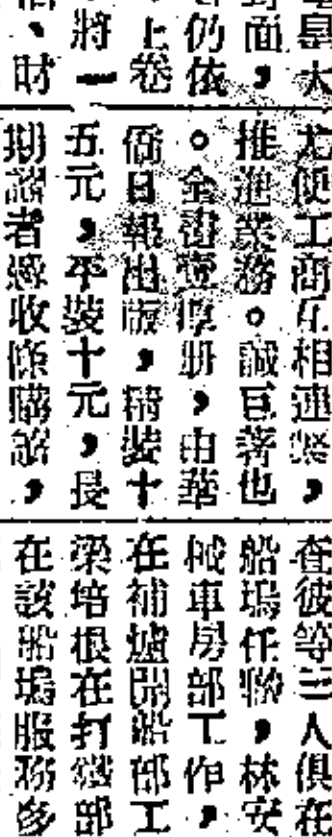 大
對面，
仍依
上卷
將一
、財
尤便工商互相連繫，
推進業務。誠巨著也
。全書壹厚册，由華
僑日報出版，精裝十
五元，平裝十元，長
期讀者憑收條購書，
查彼等三人俱在
船塢任職，林安
械車房部工作，
在補爐開船部工
梁培根在打磨部
在該船塢服務多